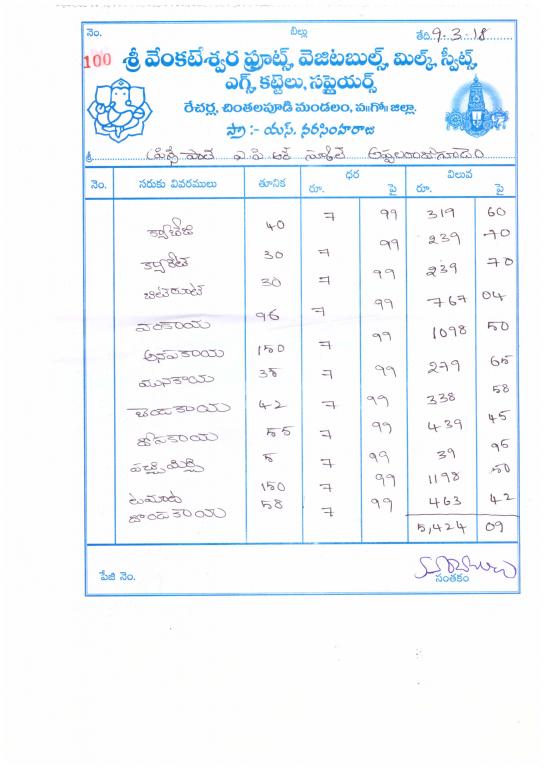 నెం. బిల్లు తేది. 9.3.18
100 శ్రీ వేంకటేశ్వర ఫ్రూట్స్, వెజిటబుల్స్, మిల్క్, స్వీట్స్,
ఎగ్స్, కట్టెలు, సప్లైయర్స్
రేచర్ల, చింతలపూడి మండలం, ప॥గో॥ జిల్లా.
ప్రొ :- యస్. నరసింహరాజు
శ్రీ ఎ.పి.ఆర్ స్కూల్
నెం. సరుకు వివరములు తూనిక ధర విలువ
రూ. పై రూ. పై
క్యాబేజి 40 7 99 319 60
క్యారెట్ 30 7 99 239 70
బీట్‌రూట్ 30 7 99 239 70
వంకాయ 96 7 99 767 04
ఆనపకాయ 150 7 99 1098 50
మునకాయ 35 7 99 279 65
బెండకాయ 42 7 99 338 58
దోసకాయ 55 7 99 439 45
పచ్చిమిర్చి 5 7 99 39 95
టమాట 150 7 99 1198 50
దొండకాయ 58 7 99 463 42
5,424 09
పేజి నెం. సంతకం